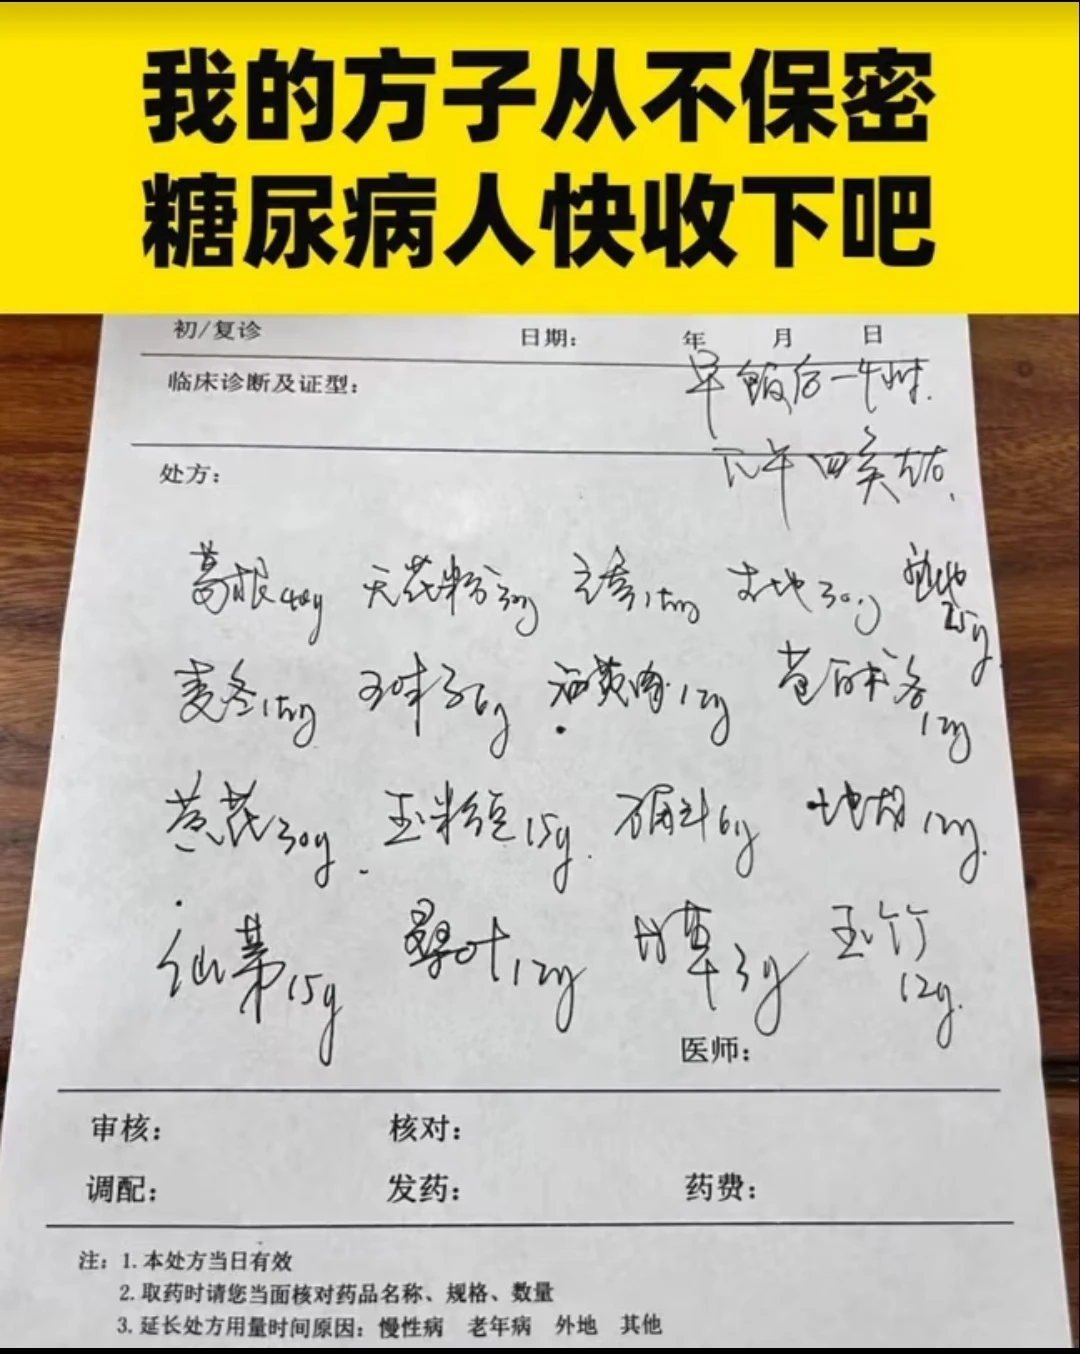 我的方子从不保密
糖尿病人快收下吧
初/复诊 日期: 年 月 日
临床诊断及证型:
早饭后一小时.
处方:
下午四点左右.
葛根40g 天花粉30g 玄参15g 生地30g 熟地25g
麦冬15g 五味子6g 山萸肉12g 苍白术各12g
黄芪30g 玉米须15g 12g
仙 15g 桑叶12g 甘草3g 玉竹12g
医师:
审核: 核对:
调配: 发药: 药费:
注: 1.本处方当日有效
2.取药时请您当面核对药品名称、规格、数量
3.延长处方用量时间原因: 慢性病 老年病 外地 其他